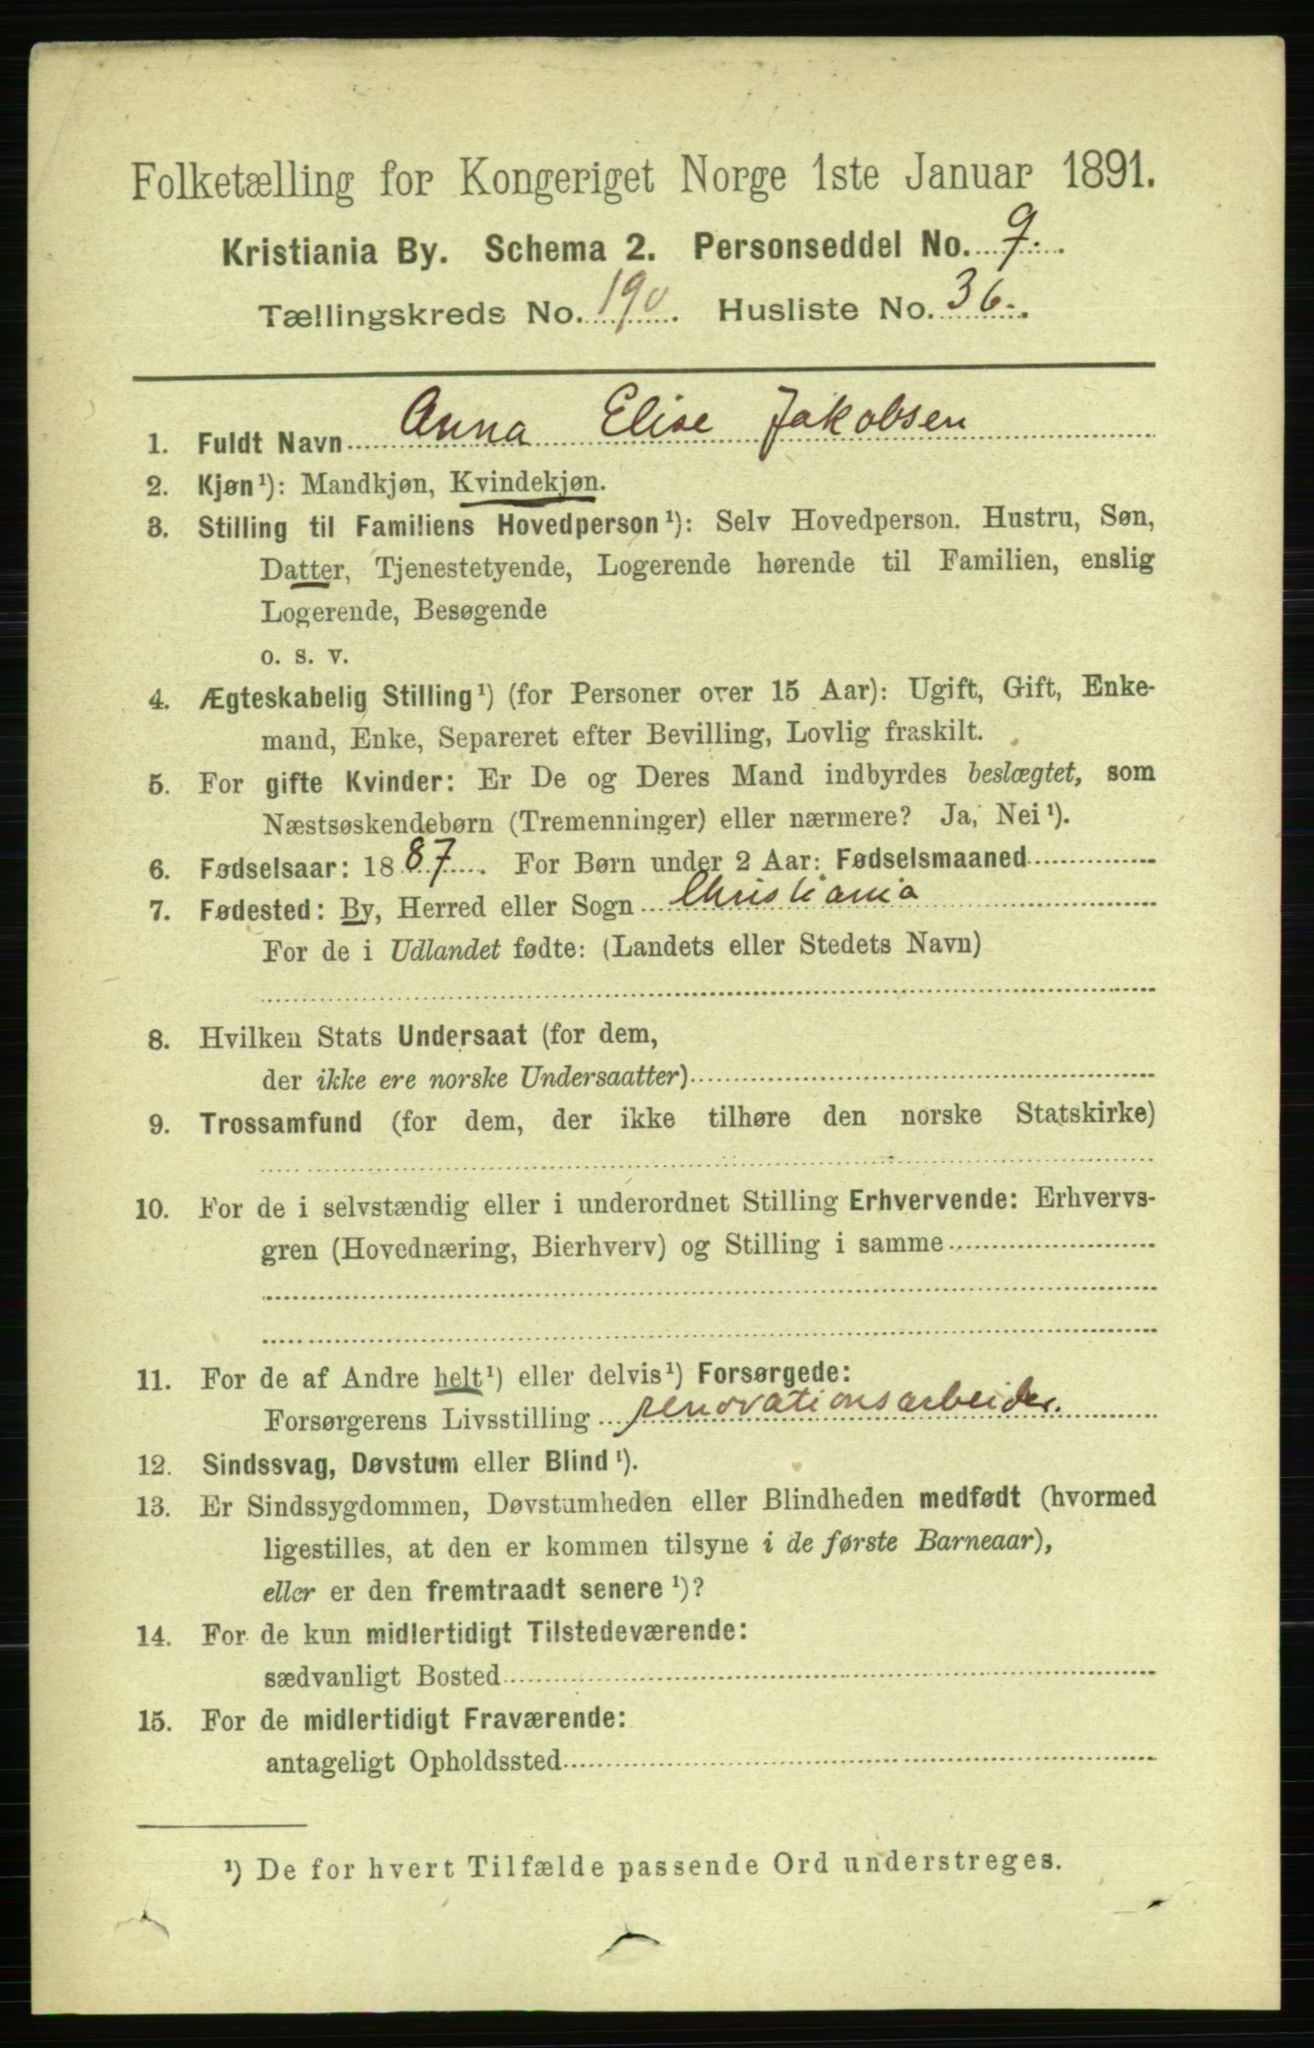 Folketælling for Kongeriget Norge 1ste Januar 1891.
Kristiania By. Schema 2. Personseddel No. 9.
Tællingskreds No. 190. Husliste No. 36.
1. Fuldt Navn Anna Elise Jakobsen
2. Kjøn¹): Mandkjøn, Kvindekjøn.
3. Stilling til Familiens Hovedperson¹): Selv Hovedperson. Hustru, Søn,
Datter, Tjenestetyende, Logerende hørende til Familien, enslig
Logerende, Besøgende
o. s. v.
4. Ægteskabelig Stilling¹) (for Personer over 15 Aar): Ugift, Gift, Enke-
mand, Enke, Separeret efter Bevilling, Lovlig fraskilt.
5. For gifte Kvinder: Er De og Deres Mand indbyrdes beslægtet, som
Næstsøskendebørn (Tremenninger) eller nærmere? Ja, Nei¹).
6. Fødselsaar: 1887. For Børn under 2 Aar: Fødselsmaaned
7. Fødested: By, Herred eller Sogn Christiania
For de i Udlandet fødte: (Landets eller Stedets Navn)
8. Hvilken Stats Undersaat (for dem,
der ikke ere norske Undersaatter)
9. Trossamfund (for dem, der ikke tilhøre den norske Statskirke)
10. For de i selvstændig eller i underordnet Stilling Erhvervende: Erhvervs-
gren (Hovednæring, Bierhverv) og Stilling i samme
11. For de af Andre helt¹) eller delvis¹) Forsørgede:
Forsørgerens Livsstilling renovationsarbeider.
12. Sindssvag, Døvstum eller Blind¹).
13. Er Sindssygdommen, Døvstumheden eller Blindheden medfødt (hvormed
ligestilles, at den er kommen tilsyne i de første Barneaar),
eller er den fremtraadt senere¹)?
14. For de kun midlertidigt Tilstedeværende:
sædvanligt Bosted
15. For de midlertidigt Fraværende:
antageligt Opholdssted
¹) De for hvert Tilfælde passende Ord understreges.